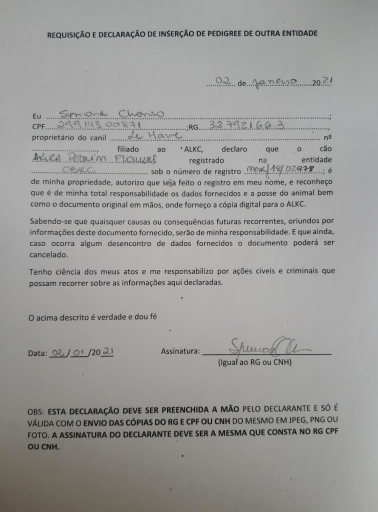 REQUISIÇÃO E DECLARAÇÃO DE INSERÇÃO DE PEDIGREE DE OUTRA ENTIDADE
02 de janeiro 2021
Eu Simone ;
CPF 29919300871 ;RG 327921663 ,
proprietário do canil de nº
, filiado ao ALKC, declaro que o cão
registrado na entidade
sob o número de registro ; é
de minha propriedade, autorizo que seja feito o registro em meu nome, e reconheço
que é de minha total responsabilidade os dados fornecidos e a posse do animal bem
como o documento original em mãos, onde forneço a cópia digital para o ALKC.
Sabendo-se que quaisquer causas ou consequências futuras recorrentes, oriundos por
informações deste documento fornecido, serão de minha responsabilidade. E que ainda,
caso ocorra algum desencontro de dados fornecidos o documento poderá ser
cancelado.
Tenho ciência dos meus atos e me responsabilizo por ações cíveis e criminais que
possam recorrer sobre as informações aqui declaradas.
O acima descrito é verdade e dou fé
Data: 02/01/2021 Assinatura:
(Igual ao RG ou CNH)
OBS: ESTA DECLARAÇÃO DEVE SER PREENCHIDA A MÃO PELO DECLARANTE E SÓ É
VÁLIDA COM O ENVIO DAS CÓPIAS DO RG E CPF OU CNH DO MESMO EM JPEG, PNG OU
FOTO. A ASSINATURA DO DECLARANTE DEVE SER A MESMA QUE CONSTA NO RG CPF
OU CNH.